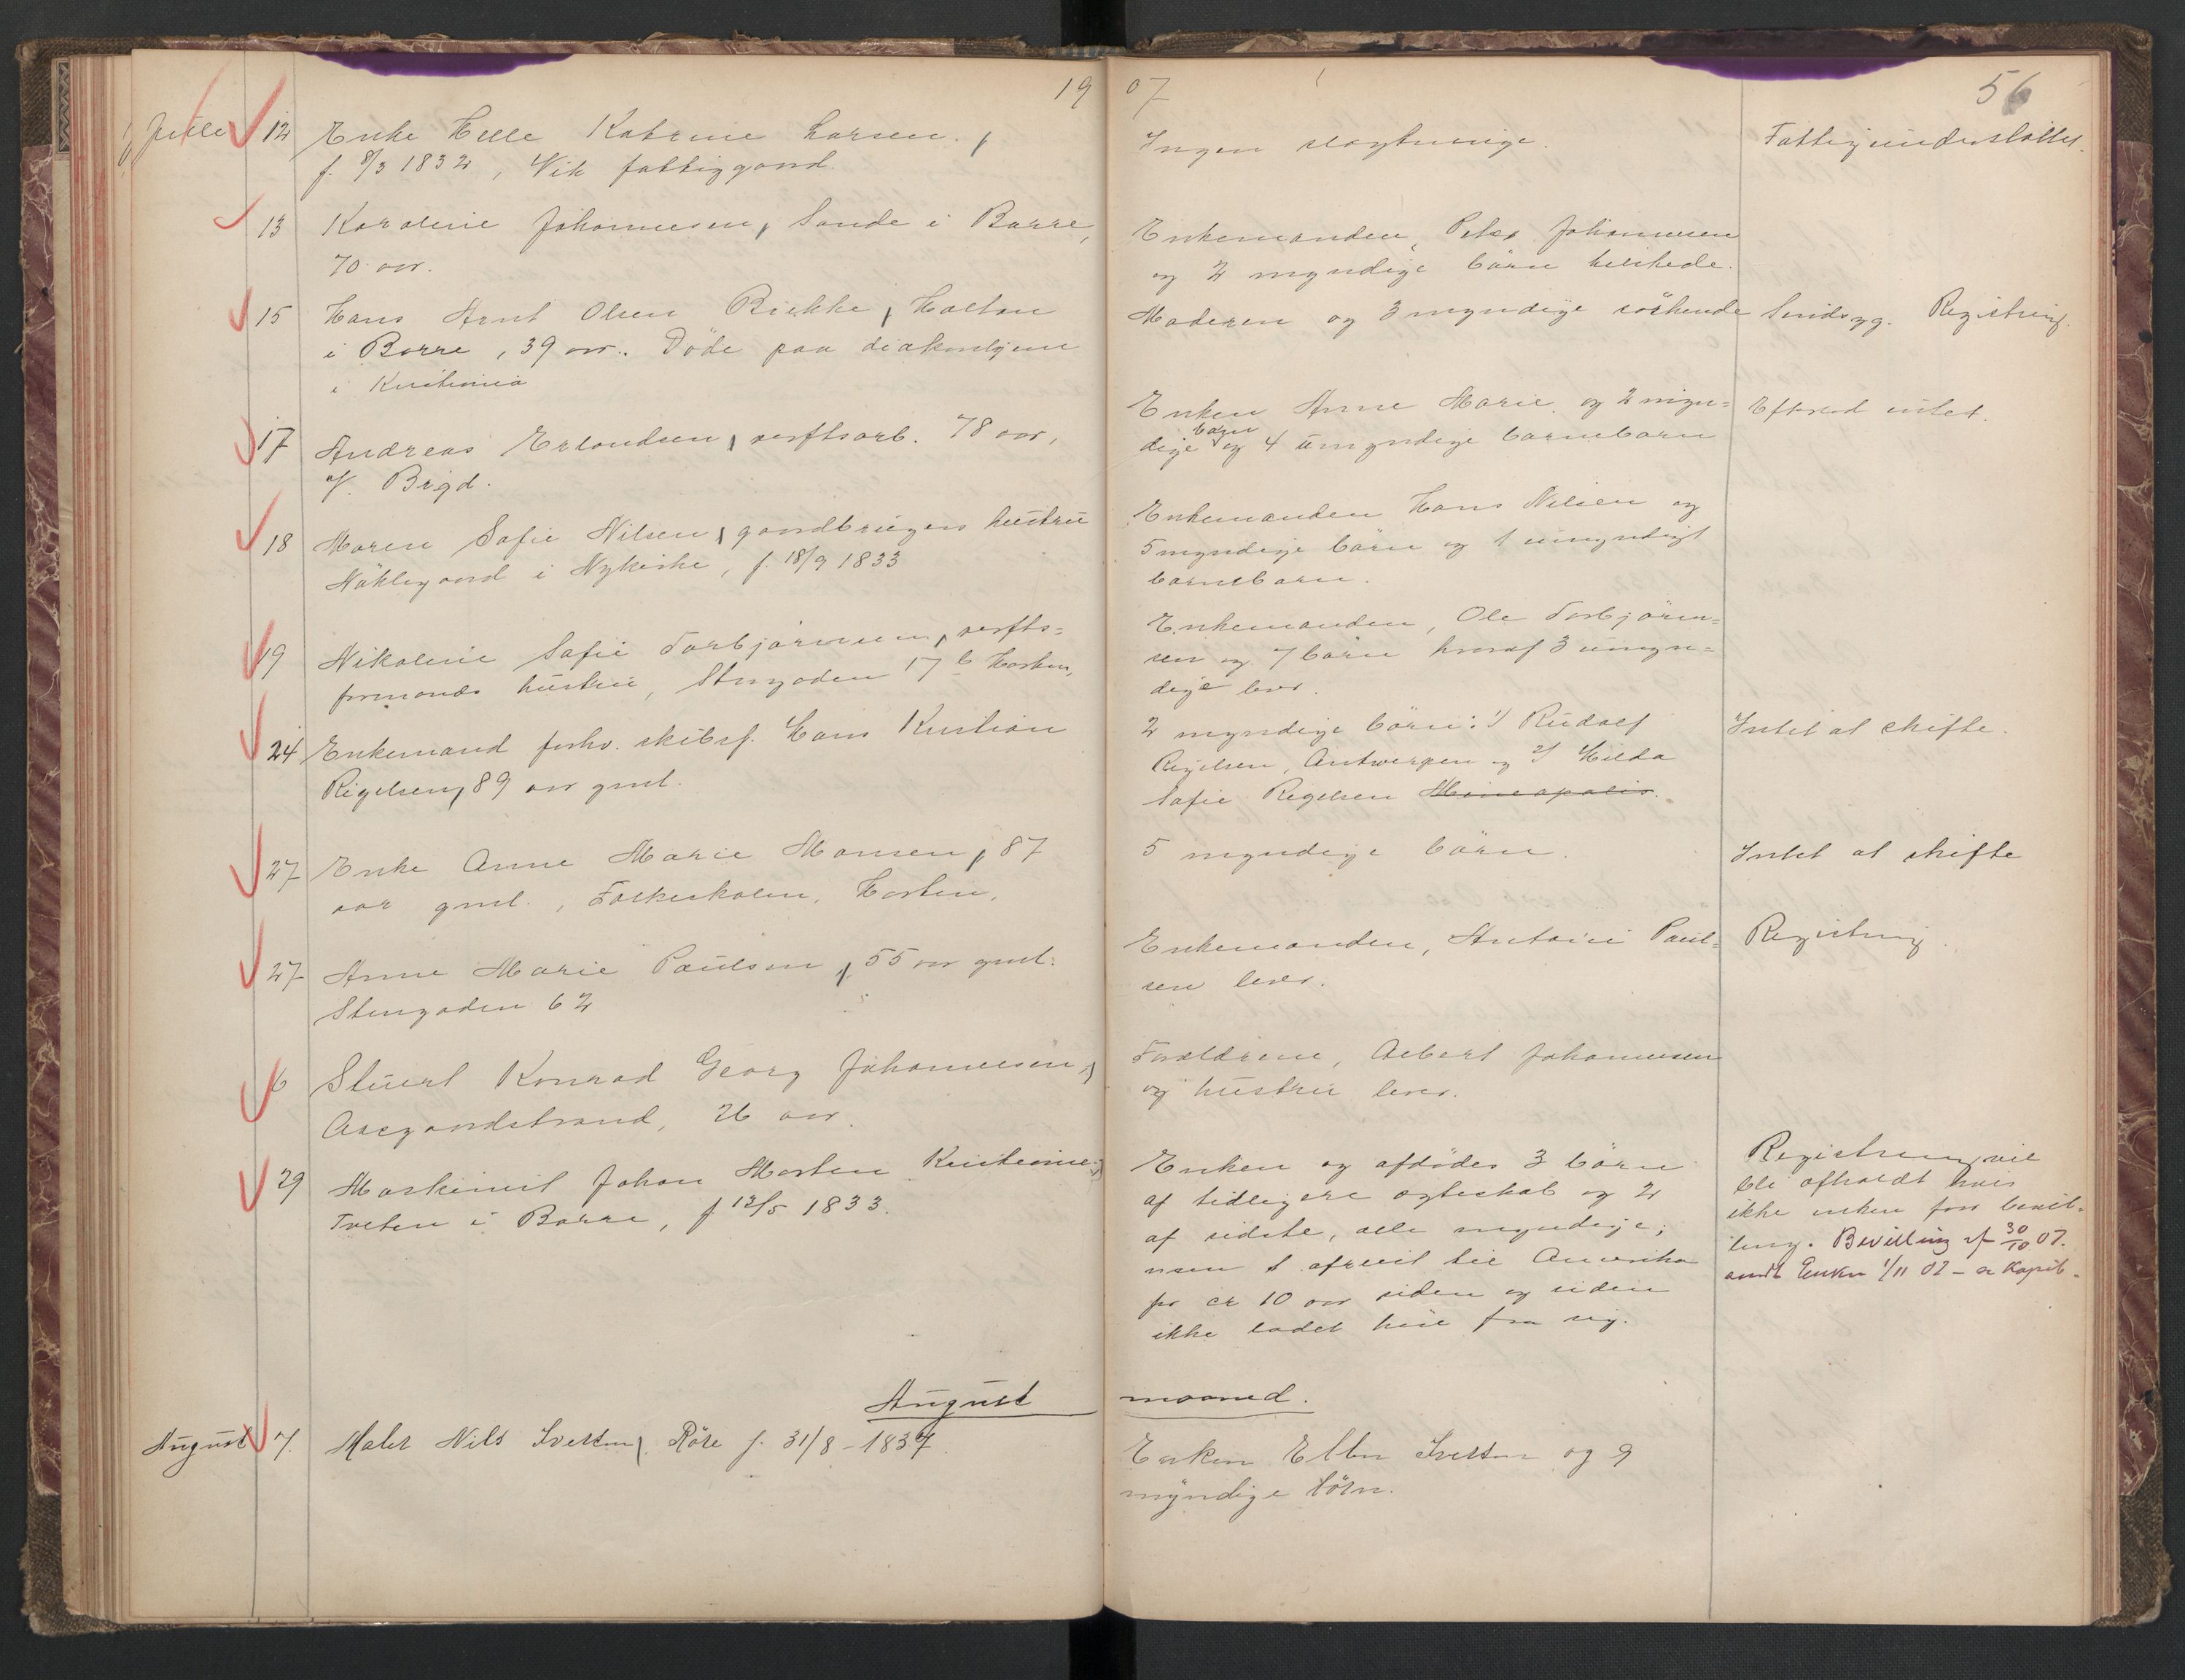 1907
56
Juli 12 Enke Helle Katrine Larsen.
f. 8/3 1832, Vik fattiggaard.
Ingen slægtninge.
Fattigunderstøttet.
13 Karoline Johannesen, Sande i Borre,
70 aar.
Enkemanden, Peter Johannesen
og 2 myndige børn
15 Hans Arnt Olsen Bekke, Holtan
i Borre, 39 aar. Døde paa diakonhjem
i Kristiania
Moderen og 3 myndige søskende
Sindssyg. Registrering.
17 Andreas Erlandsen, verftsarb. 78 aar,
V. Brgd.
Enken Anne Marie og 2 myn=
dige børn og 4 umyndige barnebarn
Efterlod intet.
18 Maren Sofie Nilsen, gaardbrugers hustru
i Nykirke, f. 18/9 1833
Enkemanden Hans Nilsen og
5 myndige børn og 1 umyndigt
barnebarn.
19 Nikoline Sofie Torbjørnsen, verfts=
formands hustru, Storgaden 17 b Horten,
Enkemanden, Ole Torbjørn=
sen og 7 børn hvoraf 3 umyn=
dige lever.
24 Enkemand forhv. skibsf. Hans Kristian
Rigelsen, 89 aar gml.
2 myndige børn: 1/ Rudolf
Rigelsen, Antwerpen og 2/ Hilda
Sofie Regelsen Mineapolis.
Intet at skifte.
27 Enke Anne Marie Monsen, 87
aar gml., Folkeskolen, Horten.
5 myndige børn.
Intet at skifte
27 Anne Marie Paulsen, 55 aar gml.
Storgaden 62
Enkemanden, Antoni Paul=
sen lever.
Registrering
6 Stuert Konrad Georg Johannesen,
Aasgaardstrand, 26 aar.
Forældrene, Albert Johannesen
og hustru lever.
29 Maskinist Johan Morten Kristensen,
Tveten i Borre, f 12/5 1833.
Enken og afdødes 3 børn
af tidligere egteskab og 2
af sidste, alle myndige;
men 1 afreist til Amerika
for ca 10 aar siden og siden
ikke ladet høre fra sig.
Registrering vil
bli afholdt hvis
ikke enken faar bevil=
ling. Bevilling af 30/10 07.
Enken 1/11 07
August maaned.
August 7. Maler Nils Iversen, Røre f. 31/8 - 1837.
Enken Ellen Iversen og 9
myndige børn.